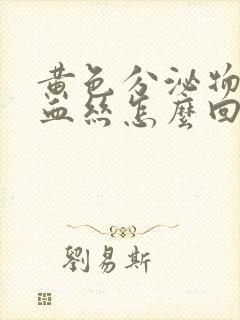 黄色分泌物
血絲怎麼回
劉易斯